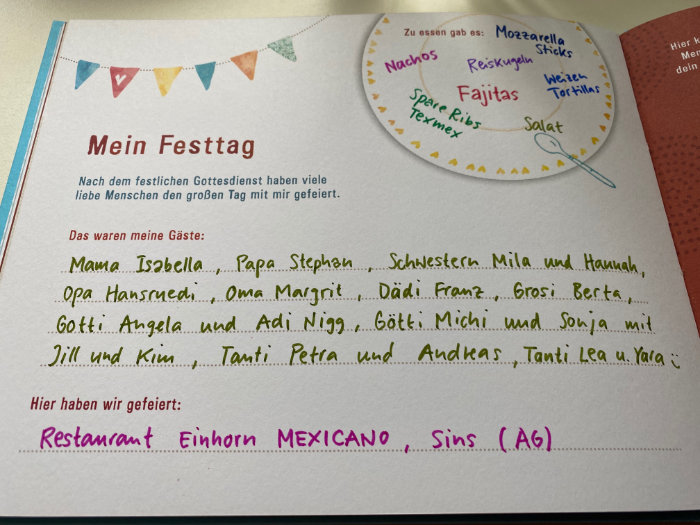 Zu essen gab es:
Mozzarella
Sticks
Nachos
Reiskugeln
Weizen
Tortillas
Fajitas
Spare Ribs
Texmex
Salat
Mein Festtag
Nach dem festlichen Gottesdienst haben viele
liebe Menschen den großen Tag mit mir gefeiert.
Das waren meine Gäste:
Mama Isabella, Papa Stephan, Schwestern Mila und Hannah,
Opa Hansruedi, Oma Margrit, Dädi Franz, Grosi Berta,
Gotti Angela und Adi Nigg, Götti Michi und Sonja mit
Jill und Kim, Tanti Petra und Andreas, Tanti Lea u. Yara
Hier haben wir gefeiert:
Restaurant Einhorn MEXICANO, Sins (AG)
Hier k
Men
dein